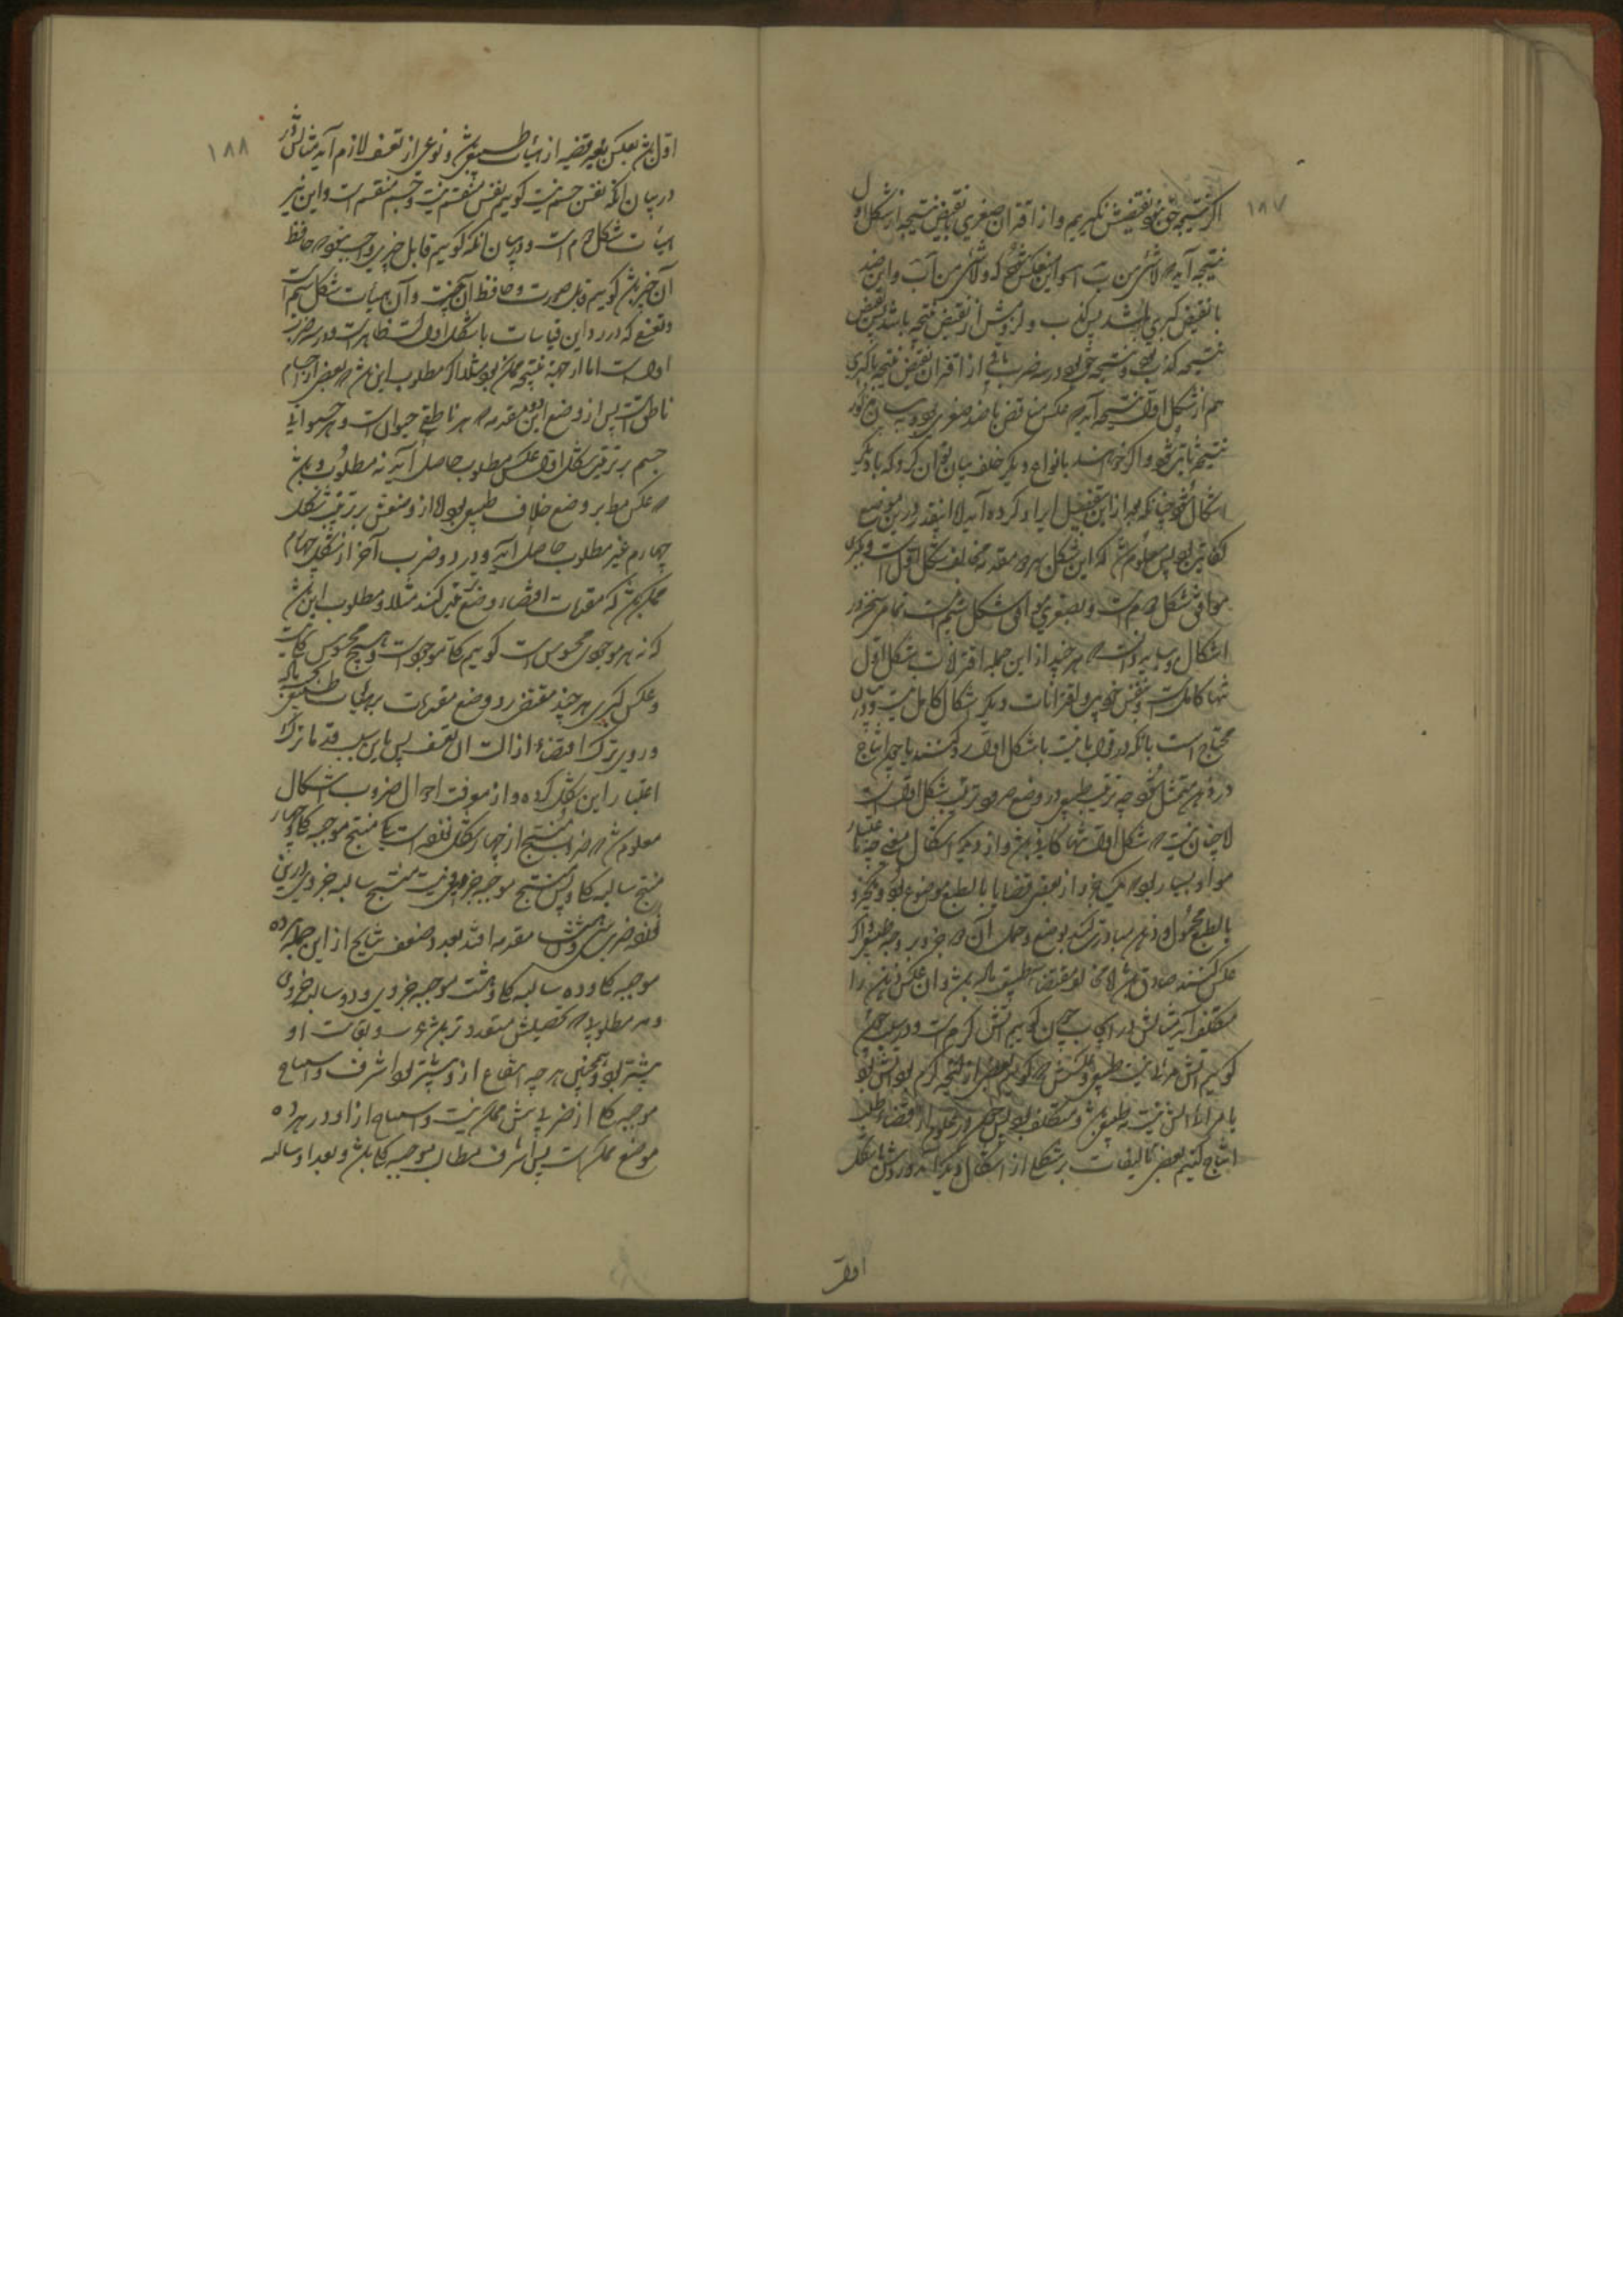 ۱۸۷
اگر نتیجه حق نبود نقیضش بگیریم و از اقتران صغری با نقیض نتیجه از شکل اول
نتیجه آید که لاشئ من ب ا و این عکس شود که و لاشئ من ا ب و این ضد
یا نقیض کبری باشد پس کذب و لزومش از نقیض نتیجه باشد پس نقیض
نتیجه کذب بود و نتیجه حق بود و در سه ضرب باقی از اقتران نقیض نتیجه با کبری
هم از شکل اول نتیجه آید که عکس مناقض یا ضد صغری بود و به بیان مذکور
نتیجه ثابت شود و اگر خواهند بانواع دیگر خلف بیان توان کرد که با دیگر
اشکال شود چنانکه بعد ازین بتفصیل ایراد کرده آید الا اینقدر درین موضع
کفایت بود پس معلوم شد که این شکل بهر دو مقدمه مخالف شکل اول است و بکبری
موافق شکل دوم است و بصغری موافق شکل سیم است تمامی سخن در
اشکال و بباید دانست که هر چند ازین جمله اقترانات شکل اول
تنها کاملست و بنفس خود بین و اقترانات دیگر اشکال کامل نیست و در آن
محتاج است بآنکه در قوت یا نسبت با شکل اول رد کنند یا
در ذهن متمثل شود چه ترتیب طبیعی در وضع حدود ترتیب شکل اول است
الا چنان نیست که شکل اول تنها کافی باشد و از دیگر اشکال مغنی چه باعتبار
مواد بسیار بود که یک جزو از بعضی قضایا بالطبع موضوع بود و دیگر جزو
بالطبع محمول و ذهن مبادرت کند بوضع و حمل آن دو جزو بر وجه طبیعی و اگر
عکس کنند صادق باشد الا مخالف مقتضای طبیعت ماده باشد و آن عکس ذهن را
متکلف آید مثالش در ایجاب چنان گوییم آتش گرم است و در سلب چنان
گوییم آتش مرئی نیست طبیعی و عکسش که گوییم بعضی از آنچه گرم بود آتش بود
یا مرئی آتش نیست نه طبیعی باشد و متکلف بود پس چون در علوم از اقتضای طلب
انتاج کنیم بعضی تألیفات بر شکلی از اشکال دیگر آید و ردش با شکل
اول
۱۸۸
اول باشد بعکس یا بغیر قضیه از هیأت طبیعی باشد و نوعی از تعسف لازم آید مثالش اگر
در بیان آنکه نفس جسم نیست گوییم نفس منقسم نیست و جسم منقسم است و این نیز
هیأت شکل دوم است و در بیان آنکه گوییم قابل چیزی واجب نبود که حافظ
آن چیز باشد گوییم آب قابل صورت و حافظ آن نیست و آن هیأت شکل سیم است
و تعسفی که در رد این قیاسات با شکل اول است ظاهر است و در سه ضرب
اول است اما از جهت نتیجه ممکن بود مثلا اگر مطلوب این باشد که بعضی اجسام
ناطق است پس از وضع این دو مقدمه که هر ناطقی حیوان است و هر حیوانی
جسم بر ترتیب شکل اول عکس مطلوب حاصل آید نه مطلوب و باشد
که عکس مطلوب بر وضع خلاف طبیعی بود الا از وضعش بر ترتیب شکل
چهارم عین مطلوب حاصل آید و در دو ضرب آخر از شکل چهارم
ممکن باشد که مقدمات اقتضای وضع معین کند مثلا و مطلوب این باشد
که نه هر موجودی محسوس است گوییم کلیات موجود است و هیچ محسوس کلی نیست
و عکس کبری هر چند مقتضی رد وضع مقدمات بر هیأت طبیعی بود
و در وی ترک اقتضای ازالت آن تعسف پس باین سبب قدما ترک
اعتبار این شکل کرده و از معرفت احوال ضروب اشکال
معلوم شد که ضرب منتج از چهار شکل نوزده است یکی منتج موجبه کلی و چهار
منتج سالبه کلی و شش منتج موجبه جزوی و هشت منتج سالبه جزوی و در این
نوزده ضرب سی و هشت مقدمه افتد بعدد ضعف نتایج از این جمله هژده
موجبه کلی و ده سالبه کلی و هشت موجبه جزوی و دو سالبه جزوی
و هر مطلوبی که تحصیلش متعددتر باشد عزت و بقای او
بیشتر بود و همچنین هر چه انتفاع از او بیشتر بود اشرف و انتاج
موجبه کلی از ضربی بیش ممکن نیست و استنتاج از او در هژده
موضع ممکن است پس اشرف مطالب موجبه کلی باشد و بعد از او سالبه